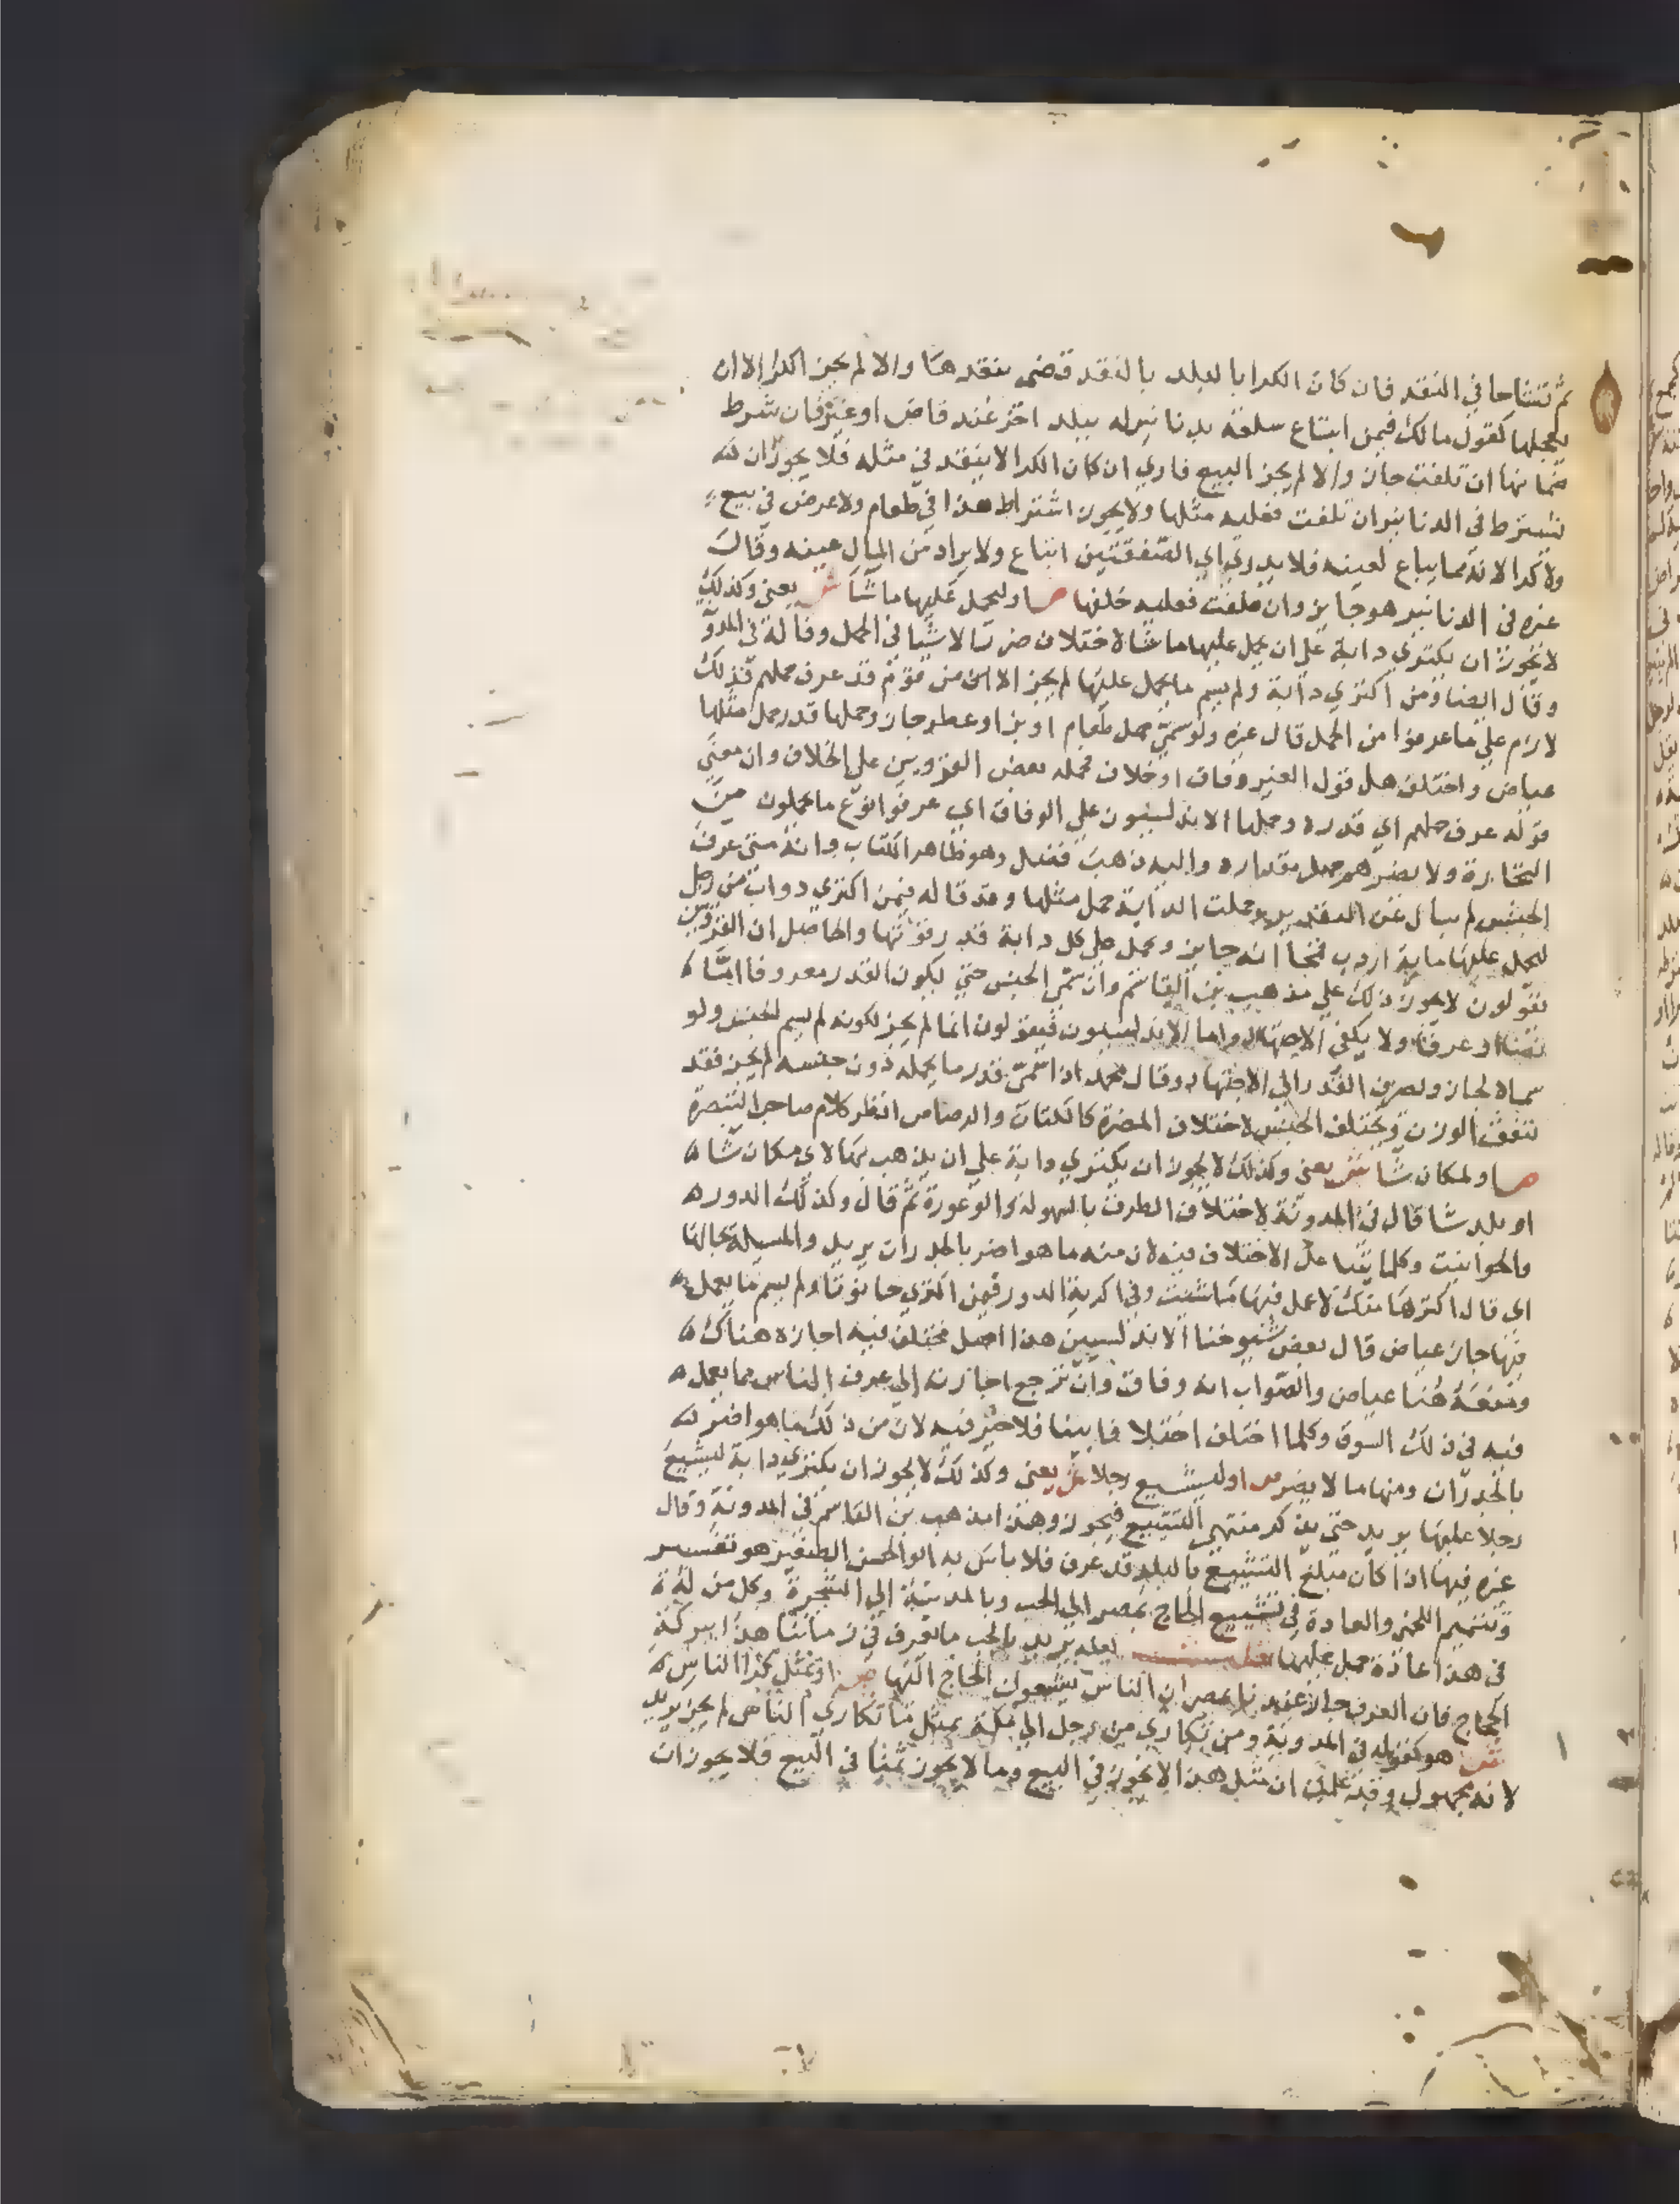 ثم تشاحا في النقد فان كان الكرا بالبلد بالنقد قضى بنقدها والا لم يجز الكرا الا ان
يعجلها كقول مالك فيمن ابتاع سلعة بدنانير له ببلد اخر عند قاض او غيره فان شرط
ضمانها ان تلفت جاز والا لم يجز البيع فاري ان كان الكرا لا ينقد في مثله فلا يجوز ان
يشترط في الدنانير ان تلفت فعليه مثلها ولا يجوز اشتراط هذا في طعام ولا عرض في بيع
ولا كرا لانه مما يباع لعينه فلا يدري اي الصفقتين ابتاع ولا يراد من المال عينه وقال
غيره في الدنانير هو جايز وان تلفت فعليه خلفها ص او ليحمل عليها ما شا ش يعني وكذلك
لا يجوز ان يكتري دابة على ان يحمل عليها ما شا لاختلاف ضرر الاشيا في الحمل وقاله في المدو
وقال ايضا ومن اكتري دابة ولم يسم ما يحمل عليها لم يجز الا من قوم قد عرف حملهم فذلك
لازم على ما عرفوا من الحمل قال غيره ولو سمى حمل طعام او بز او عطر جاز وحملها قدر حمل مثلها
عياض واختلف هل قول الغير وفاق او خلاف فحمله بعض القرويين على الخلاف وان معنى
قوله عرف حملهم اي قدره وحملها الاندلسيون على الوفاق اي عرفوا نوع ما يحملون من
التجارة ولا يضرهم جهل مقداره واليه ذهب فضل وهو ظاهر الكتاب وانه متى عرف
الجنس لم يسال عن التقدير وحملت الدابة حمل مثلها وقد قاله فيمن اكتري دواب من رجل
ليحمل عليها ماية اردب قمحا انه جايز ويحمل على كل دابة قدر قوتها والحاصل ان القرويين
يقولون لا يجوز ذلك على مذهب بن القاسم وان سمى الجنس حتى يكون القدر معروفا اما
نصا او عرفا ولا يكفي الاجتهاد واما الاندلسيون فيقولون انما لم يجز لكونه لم يسم الجنس ولو
سماه لجاز وصرف القدر الى الاجتهاد وقال محمد اذا سمى قدر ما يحمله دون جنسه لم يجز فقد
يتفق الوزن ويختلف الجنس لاختلاف المضرة كالكتان والرصاص انظر كلام صاحب التبصرة
ص او لمكان شا ش يعني وكذلك لا يجوز ان يكتري دابة على ان يذهب بها لاي مكان شا
او بلد شا قال في المدونة لاختلاف الطرق بالسهولة والوعورة ثم قال وكذلك الدور
والحوانيت وكلما يتباعد الاختلاف فيه لان منه ما هو اضر بالجدران يريد والمسيلة بحالها
اي قال اكترها منك لاعمل فيها ما شيت وفي اكرية الدور فيمن اكتري حانوتا ولم يسم ما يعمل
فيها جاز عياض قال بعض شيوخنا الاندلسيين هذا اصل مختلف فيه اجازه هناك
ومنعه هنا عياض والصواب انه وفاق وان ترجع اجازته الى عرف الناس مما يعمل
فيه في ذلك السوق وكلما اختلف اختلافا بينا فلا خير فيه لان من ذلك ما هو اضر
بالجدران ومنها ما لا يضر ص او ليشيع رجلا ش يعني وكذلك لا يجوز ان يكتري دابة ليشيع
رجلا عليها يريد حتى يذكر منتهى التشييع فيجوز وهذا مذهب بن القاسم في المدونة وقال
غيره فيها اذا كان مبلغ التشييع بالبلد قد عرف فلا باس به ابو الحسن الصغير هو تفسير
وتتميم اللخمي والعادة في تشييع الحاج بمصر الى الجب وبالمدينة الى الشجرة وكل من له
في هذا عادة حمل عليها لعله يريد بالجب ما يعرف في زماننا هذا ببركة
الحجاج فان العرف جار عندنا بمصر ان الناس يشيعون الحجاج اليها ص او بمثل كرا الناس
ش هو كقوله في المدونة ومن تكاري من رجل الى مكة بمثل ما تكاري الناس لم يجز يريد
لانه مجهول وقد علمت ان مثل هذا لا يجوز في البيع وما لا يجوز ثمنا في البيع فلا يجوز ان